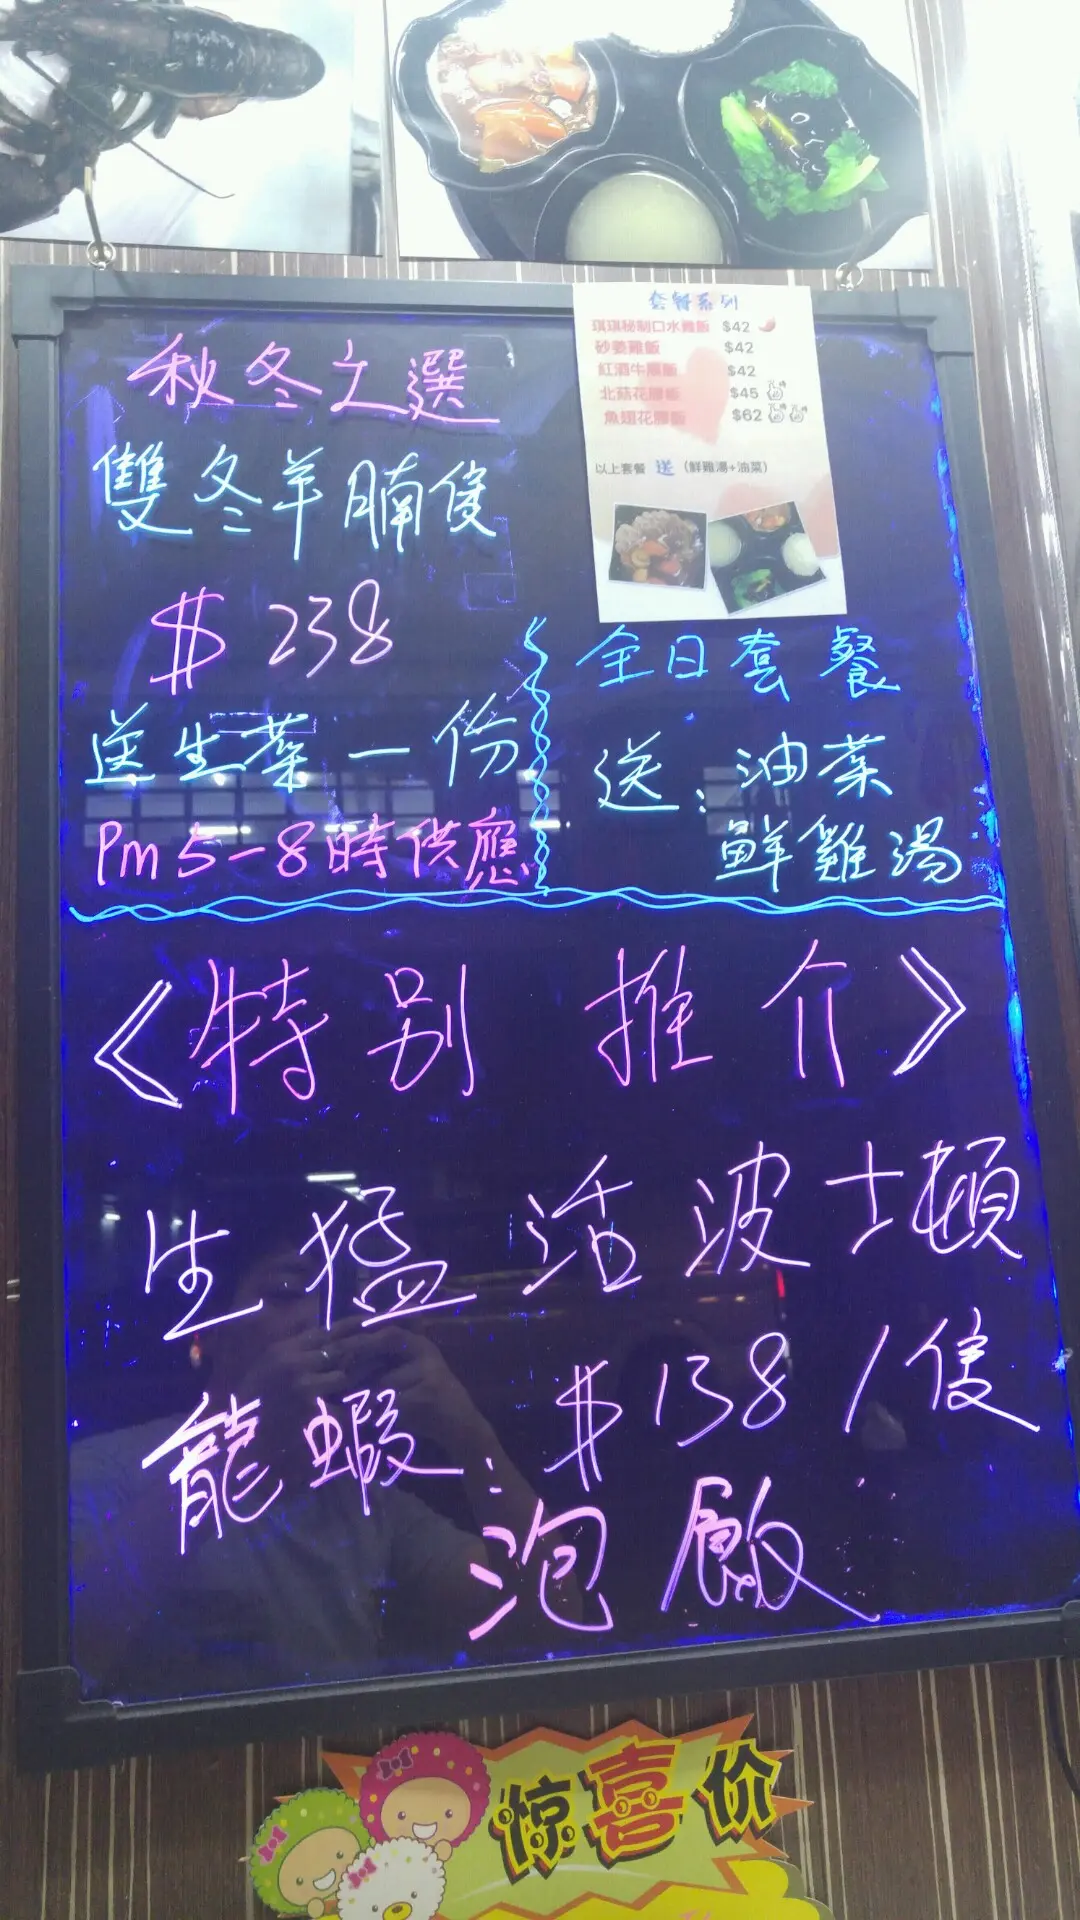 秋冬之選
雙冬羊腩煲
$238
送生菜一份
Pm 5-8時供應
套餐系列
琪琪秘制口水雞飯 $42
砂姜雞飯 $42
紅酒牛腩飯 $42
北菇花膠飯 $45
魚翅花膠飯 $62
以上套餐 送 (鮮雞湯+油菜)
全日套餐
送:油菜
鮮雞湯
《特別推介》
生猛活波士頓
龍蝦:$138/隻
泡飯
惊喜价